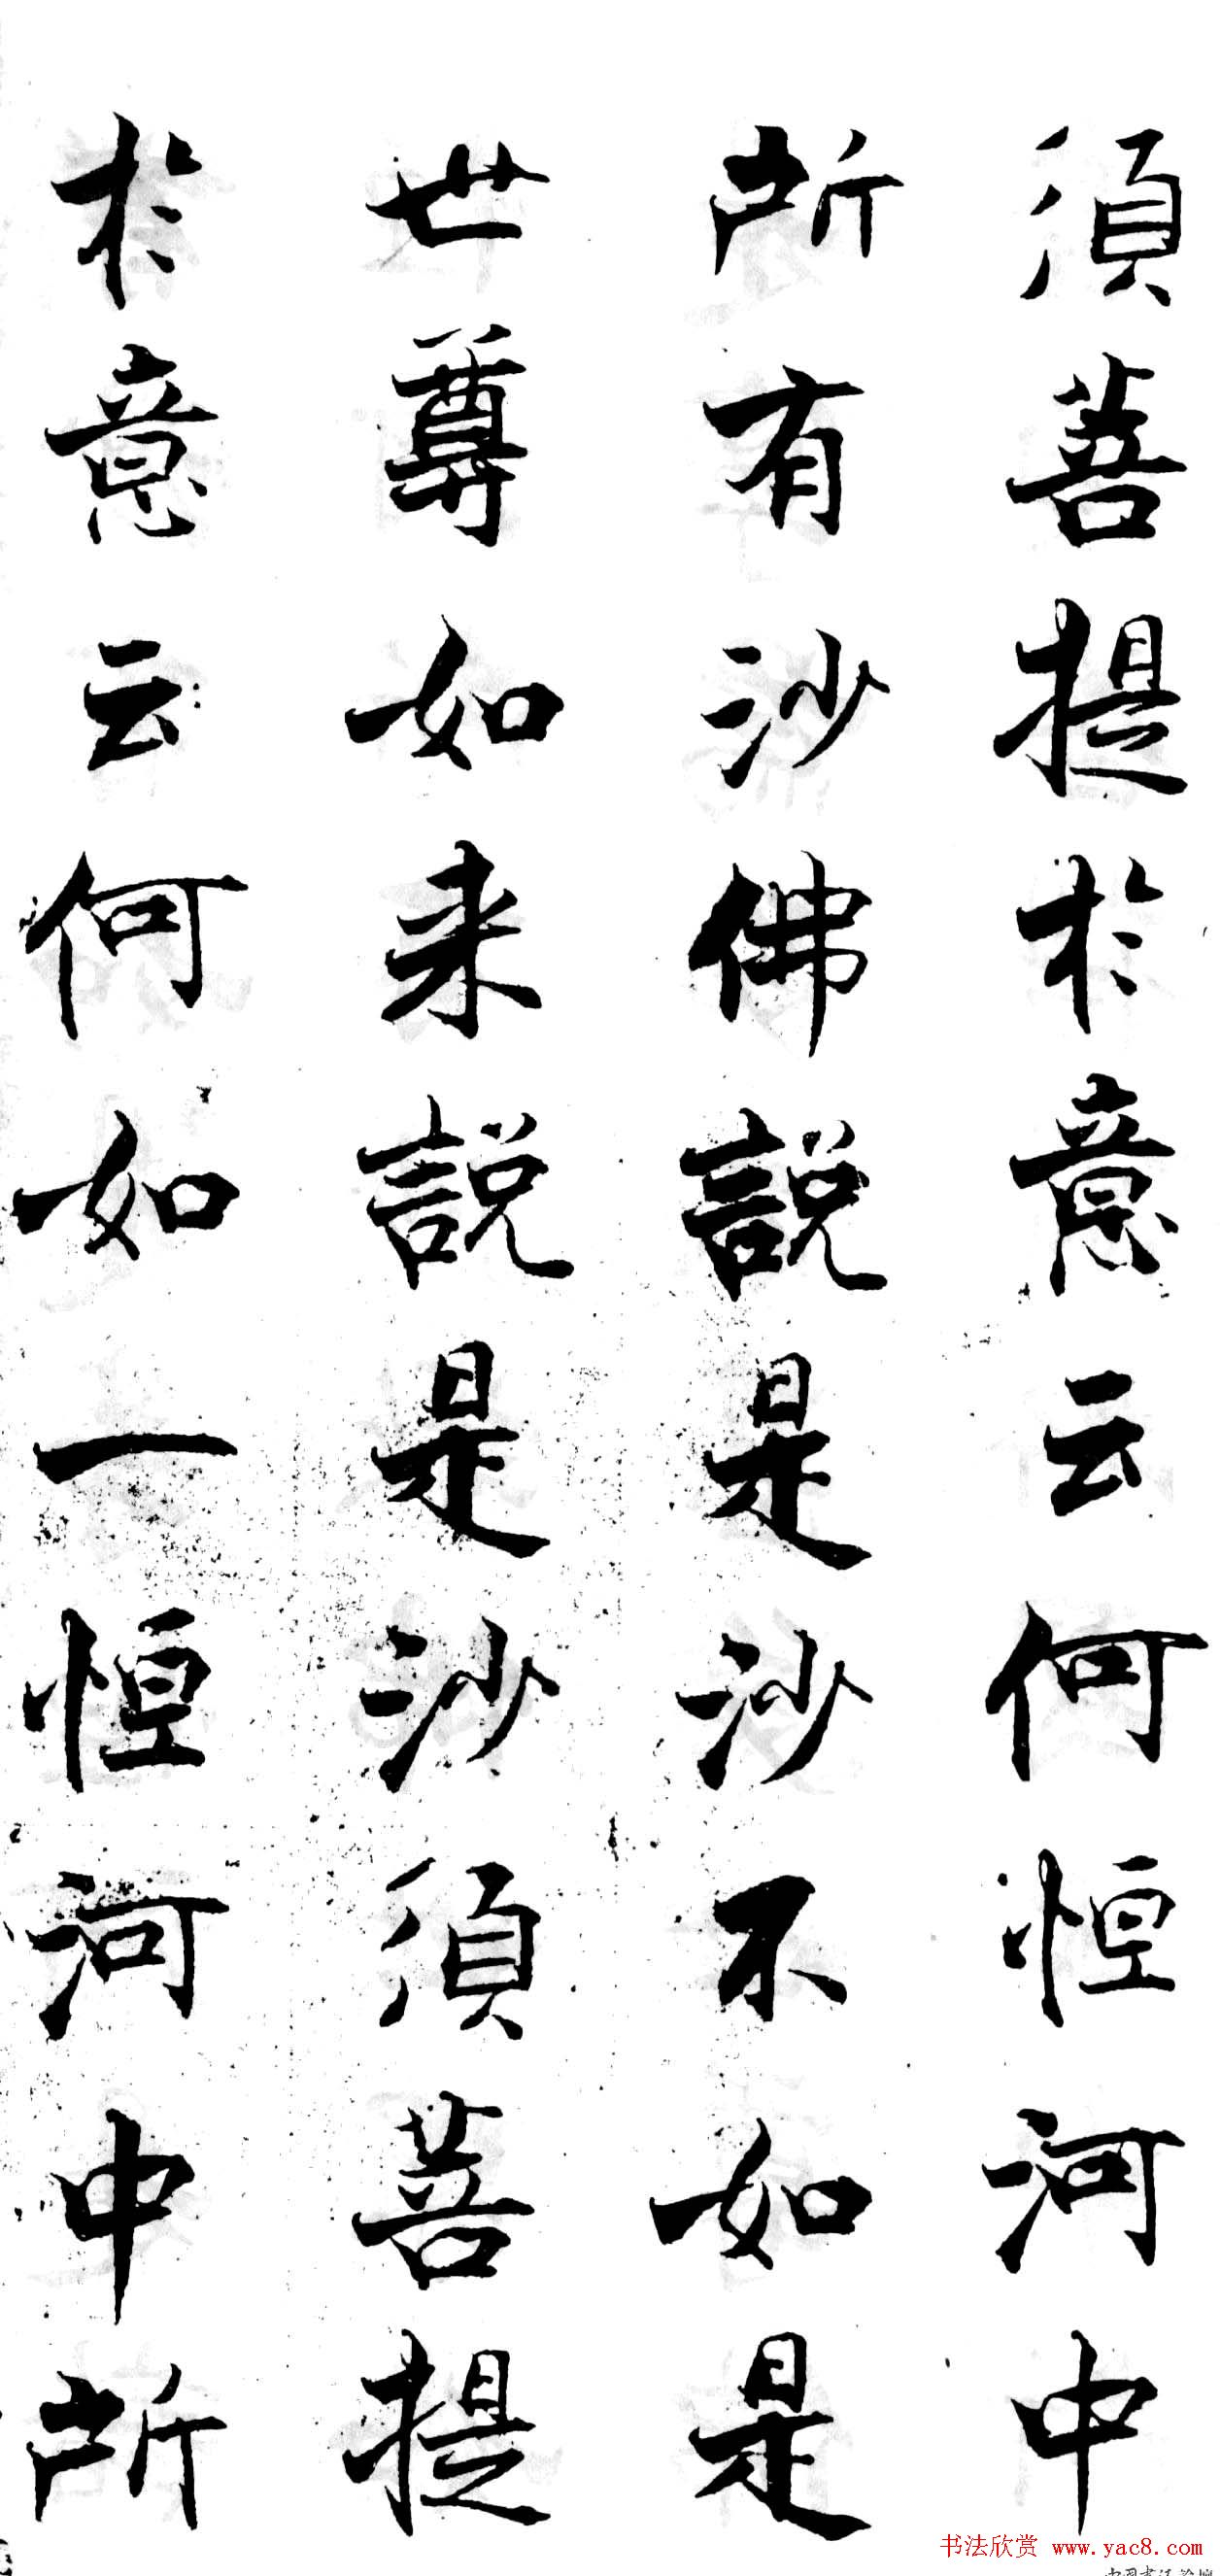 須菩提於意云何恒河中
所有沙佛說是沙不如是
世尊如来說是沙須菩提
於意云何如一恒河中所
书法欣赏 www.yac8.com